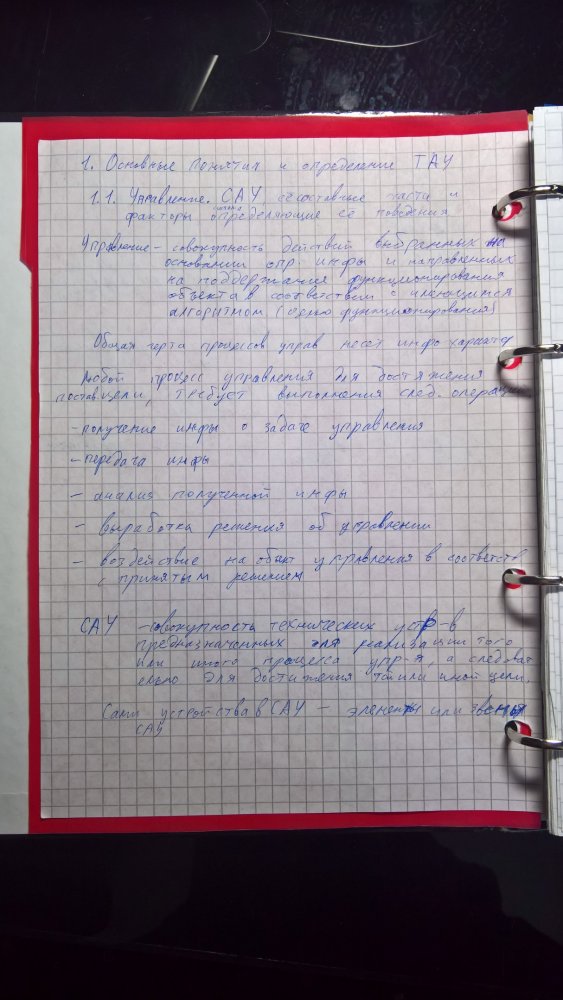 1. Основные понятия и определение ТАУ
1.1. Управление. САУ, её составные части и
факторы определяющие ее поведения
Управление - совокупность действий выбранных на
основании опр. инфы и направленных
на поддержания функционирования
объекта в соответствии с имеющимся
алгоритмом (целью функционирования)
Общая черта процессов управ несёт инфо характер
Любой процесс управления для достяжения
постав. цели, требует выполнения след. операций
- получение инфы о задаче управления
- передача инфы
- анализ полученной инфы
- выработка решения об управлении
- воздействие на объкт управления в соответств
с принятым решением
САУ - совокупность технических устр-в
предназначенных для реализации того
или иного процесса упр-я, а следоват
ельно для достижения той или иной цели.
Сами устройства в САУ - элементы или звенья
САУ